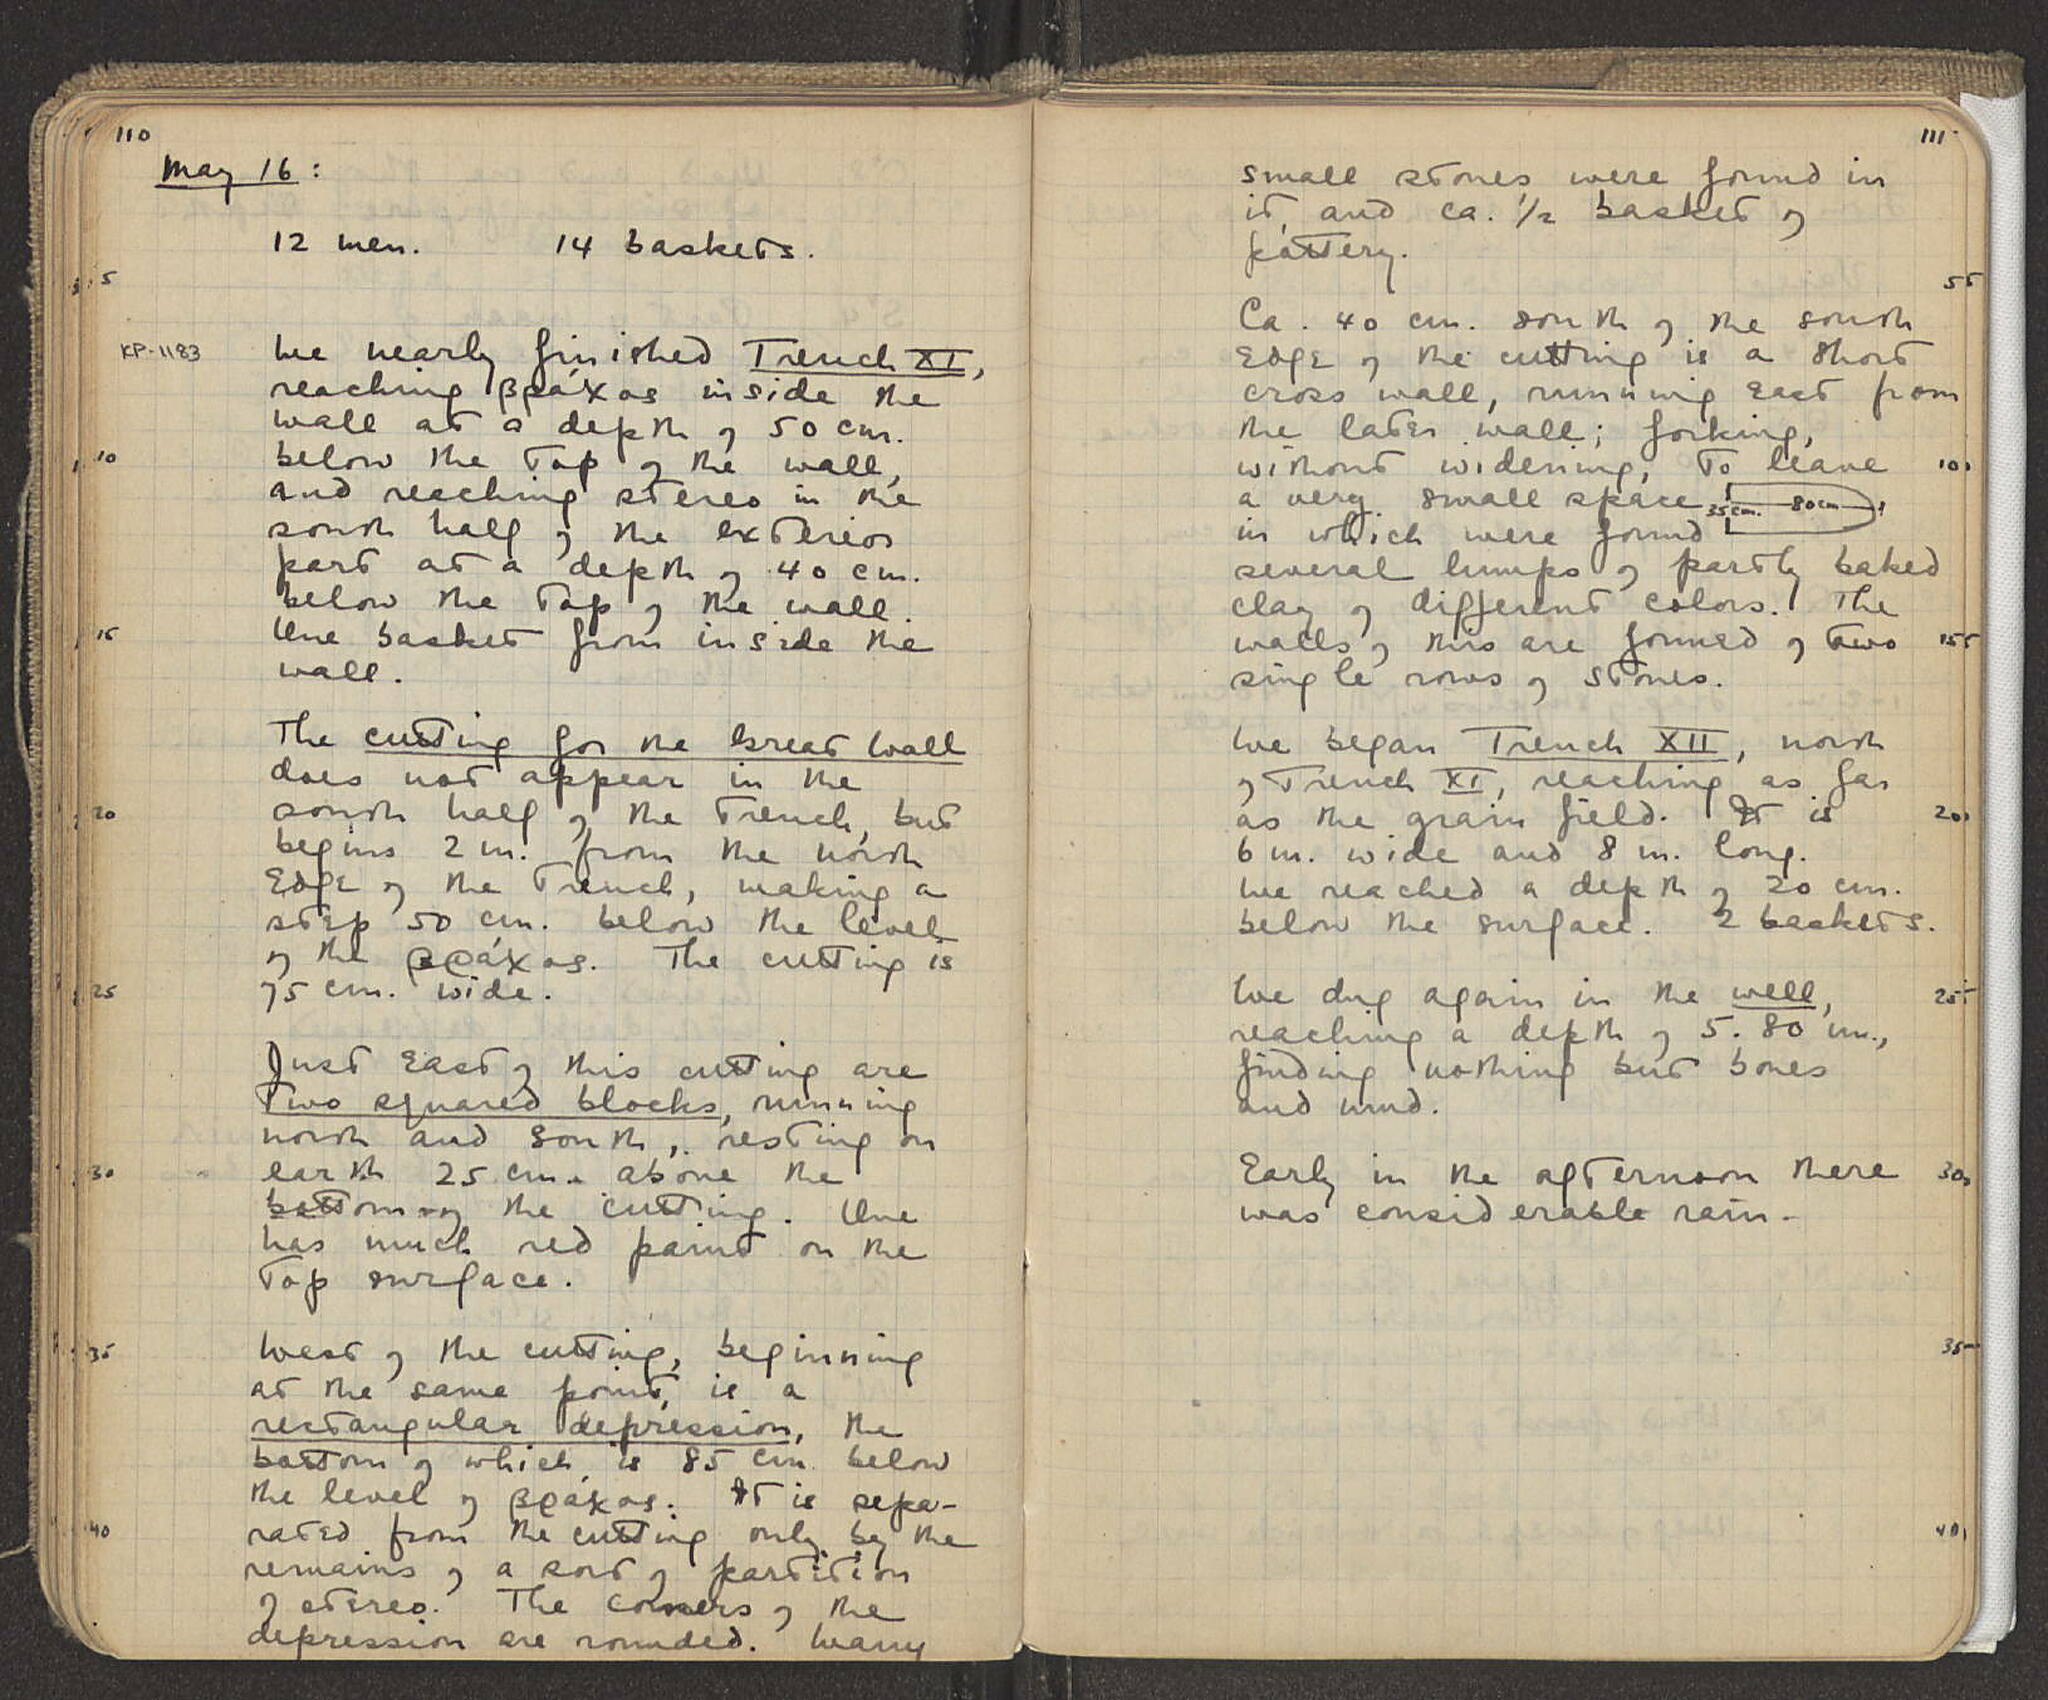 110
May 16:
12 men. 14 baskets.
5
KP-1183 We nearly finished Trench XI,
reaching βράχος inside the
wall at a depth of 50 cm.
10 below the top of the wall,
and reaching stereo in the
south half of the exterior
part at a depth of 40 cm.
below the top of the wall.
15 One basket from inside the
wall.
The cutting for the Great Wall
does not appear in the
20 south half of the trench, but
begins 2 m. from the north
edge of the trench, making a
step 50 cm. below the level
of the βράχος. The cutting is
25 75 cm. wide.
Just east of this cutting are
two squared blocks, running
north and south, resting on
30 earth 25 cm. above the
bottom of the cutting. One
has much red paint on the
top surface.
35 West of the cutting, beginning
at the same point, is a
rectangular depression, the
bottom of which is 85 cm below
the level of βράχος. It is sepa-
40 rated from the cutting only by the
remains of a sort of partition
of stereo. The corners of the
depression are rounded. Many
111
small stones were found in
it, and ca. 1/2 basket of
pottery.
5
Ca. 40 cm. south of the south
edge of the cutting is a short
cross wall, running east from
the later wall; forking,
without widening, to leave 10
a very small space 35 cm. 80 cm
in which were found
several lumps of partly baked
clay of different colors. The
walls of this are formed of two 15
single rows of stones.
We began Trench XII, north
of Trench XI, reaching as far
as the grain field. It is 20
6 m. wide and 8 m. long.
We reached a depth of 20 cm.
below the surface. 2 baskets.
We dug again in the well, 25
reaching a depth of 5.80 m.,
finding nothing but bones
and mud.
Early in the afternoon there 30
was considerable rain.
35
40